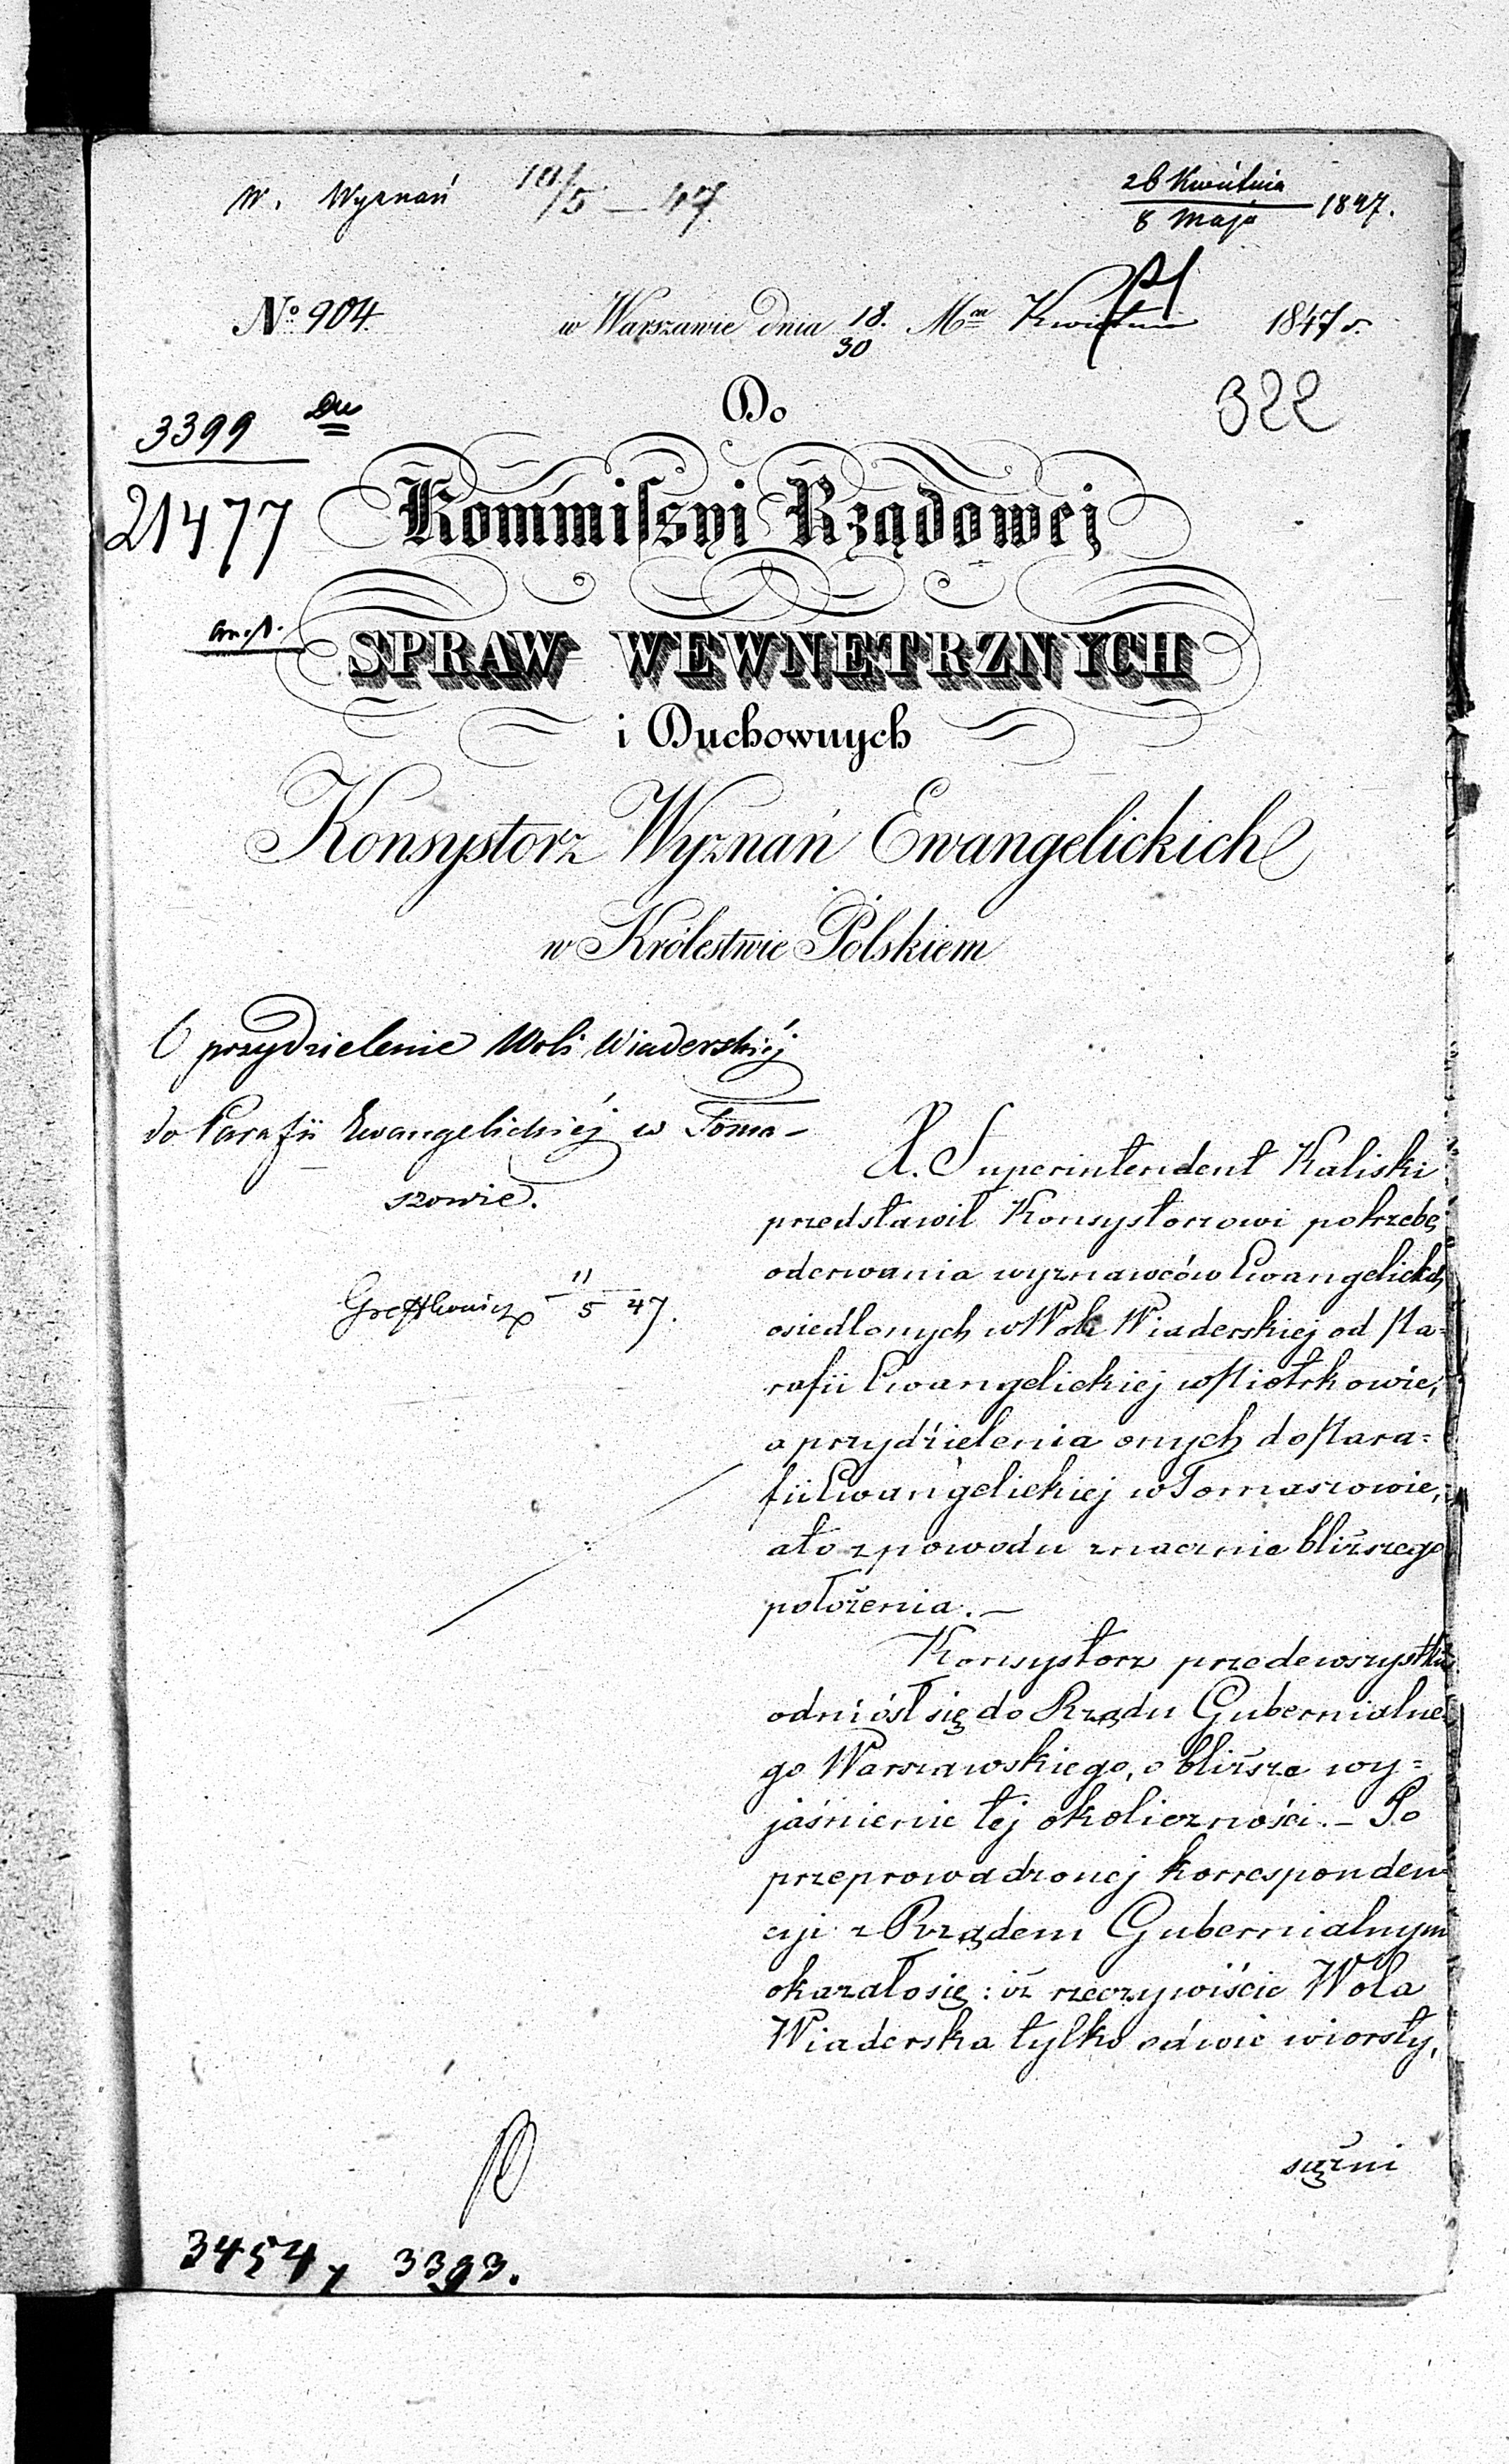 W. Wyznań 10/5 – 47
26 Kwietnia
8 Maja 1847.
№ 904.
w Warszawie dnia 18./30 Mca Kwietnia 1847 r.
322
3399
21477
Do
Kommiſsyi Rządowej
SPRAW WEWNĘTRZNYCH
i Duchownych
Konsystorz Wyznań Ewangelickich
w Królestwie Polskiem
O przydzielenie Woli Wiaderskiéj
do Parafii Ewangelickiéj w Toma-
szowie.
11/5 47.
X. Superintendent Kaliski
przedstawił Konsystorzowi potrzebę
oderwania wyznawców Ewangelickich
osiedlonych w Woli Wiaderskiej od Pa=
rafii Ewangelickiej w Piotrkowie,
a przydzielenia onych do Para=
fii Ewangelickiej w Tomaszowie,
a to z powodu znacznie bliższego
położenia. –
Konsystorz przedewszystkiem
odniósł się do Rządu Gubernialne=
go Warszawskiego, o bliższe wy=
jaśnienie tej okoliczności. – Po
przeprowadzonej korresponden=
cyi z Rządem Gubernialnym
okazało się: iż rzeczywiście Wola
Wiaderska tylko o dwie wiorsty,
sążni
3454, 3393.